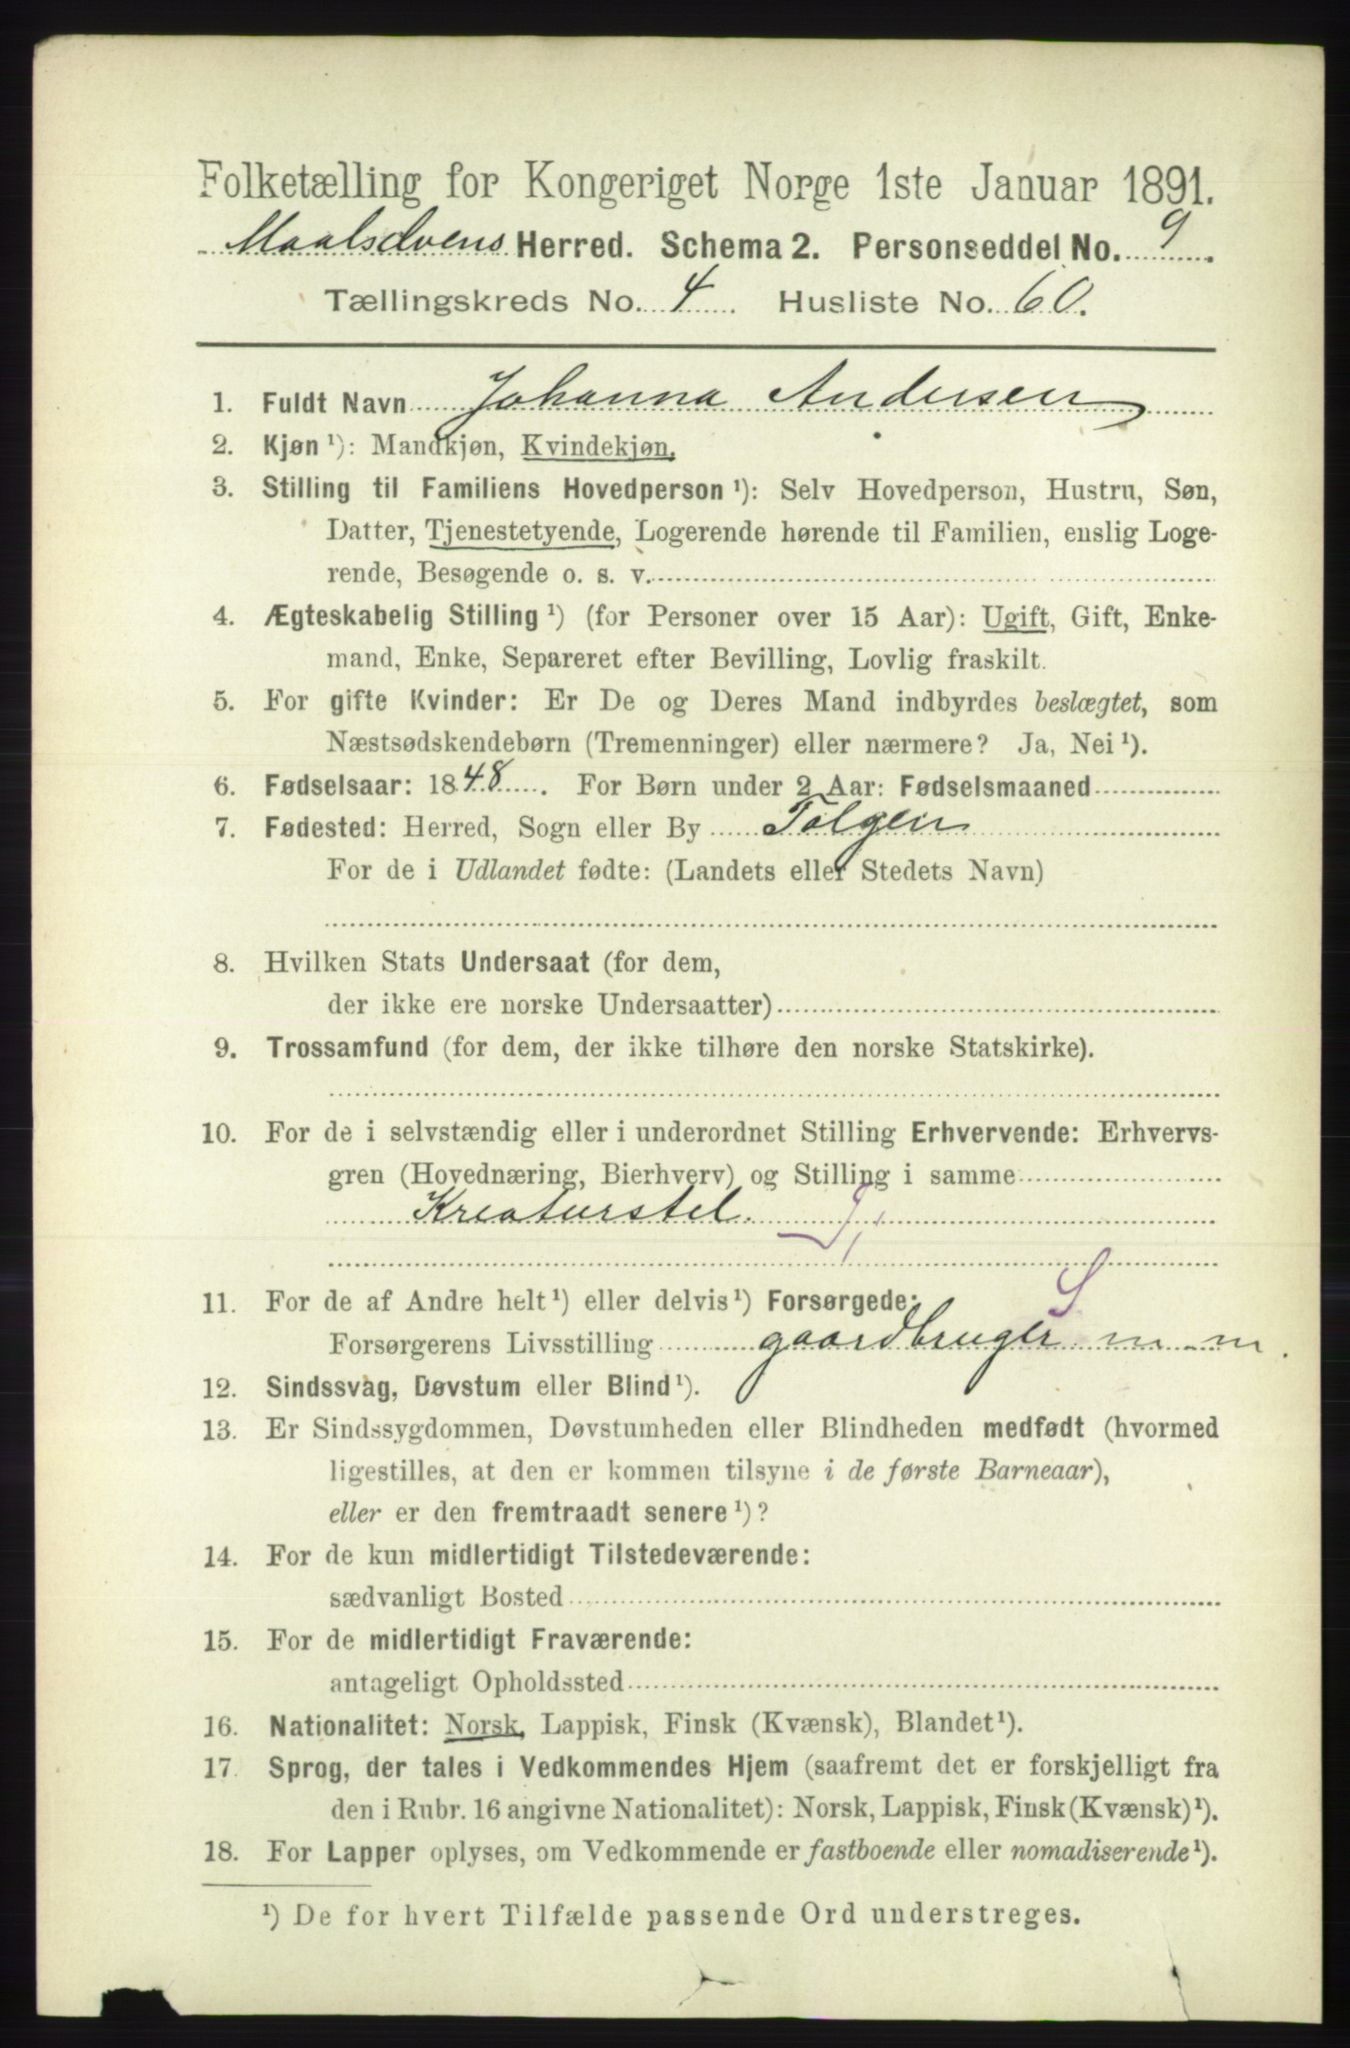 Folketælling for Kongeriget Norge 1ste Januar 1891.
Maalselvens Herred. Schema 2. Personseddel No. 9.
Tællingskreds No. 4. Husliste No. 60.
1. Fuldt Navn Johanna Andersen
2. Kjøn ¹): Mandkjøn, Kvindekjøn.
3. Stilling til Familiens Hovedperson ¹): Selv Hovedperson, Hustru, Søn,
Datter, Tjenestetyende, Logerende hørende til Familien, enslig Loge-
rende, Besøgende o. s. v.
4. Ægteskabelig Stilling ¹) (for Personer over 15 Aar): Ugift, Gift, Enke-
mand, Enke, Separeret efter Bevilling, Lovlig fraskilt.
5. For gifte Kvinder: Er De og Deres Mand indbyrdes beslægtet, som
Næstsødskendebørn (Tremenninger) eller nærmere? Ja, Nei ¹).
6. Fødselsaar: 1848. For Børn under 2 Aar: Fødselsmaaned
7. Fødested: Herred, Sogn eller By Tolgen
For de i Udlandet fødte: (Landets eller Stedets Navn)
8. Hvilken Stats Undersaat (for dem,
der ikke ere norske Undersaatter)
9. Trossamfund (for dem, der ikke tilhøre den norske Statskirke).
10. For de i selvstændig eller i underordnet Stilling Erhvervende: Erhvervs-
gren (Hovednæring, Bierhverv) og Stilling i samme
Kreaturstel
11. For de af Andre helt ¹) eller delvis ¹) Forsørgede: S
Forsørgerens Livsstilling gaardbruger m. m.
12. Sindssvag, Døvstum eller Blind ¹).
13. Er Sindssygdommen, Døvstumheden eller Blindheden medfødt (hvormed
ligestilles, at den er kommen tilsyne i de første Barneaar),
eller er den fremtraadt senere ¹)?
14. For de kun midlertidigt Tilstedeværende:
sædvanligt Bosted
15. For de midlertidigt Fraværende:
antageligt Opholdssted
16. Nationalitet: Norsk, Lappisk, Finsk (Kvænsk), Blandet ¹).
17. Sprog, der tales i Vedkommendes Hjem (saafremt det er forskjelligt fra
den i Rubr. 16 angivne Nationalitet): Norsk, Lappisk, Finsk (Kvænsk) ¹).
18. For Lapper oplyses, om Vedkommende er fastboende eller nomadiserende ¹).
¹) De for hvert Tilfælde passende Ord understreges.